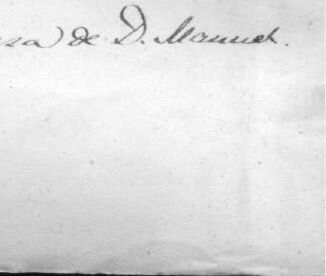 de D. Manuel.